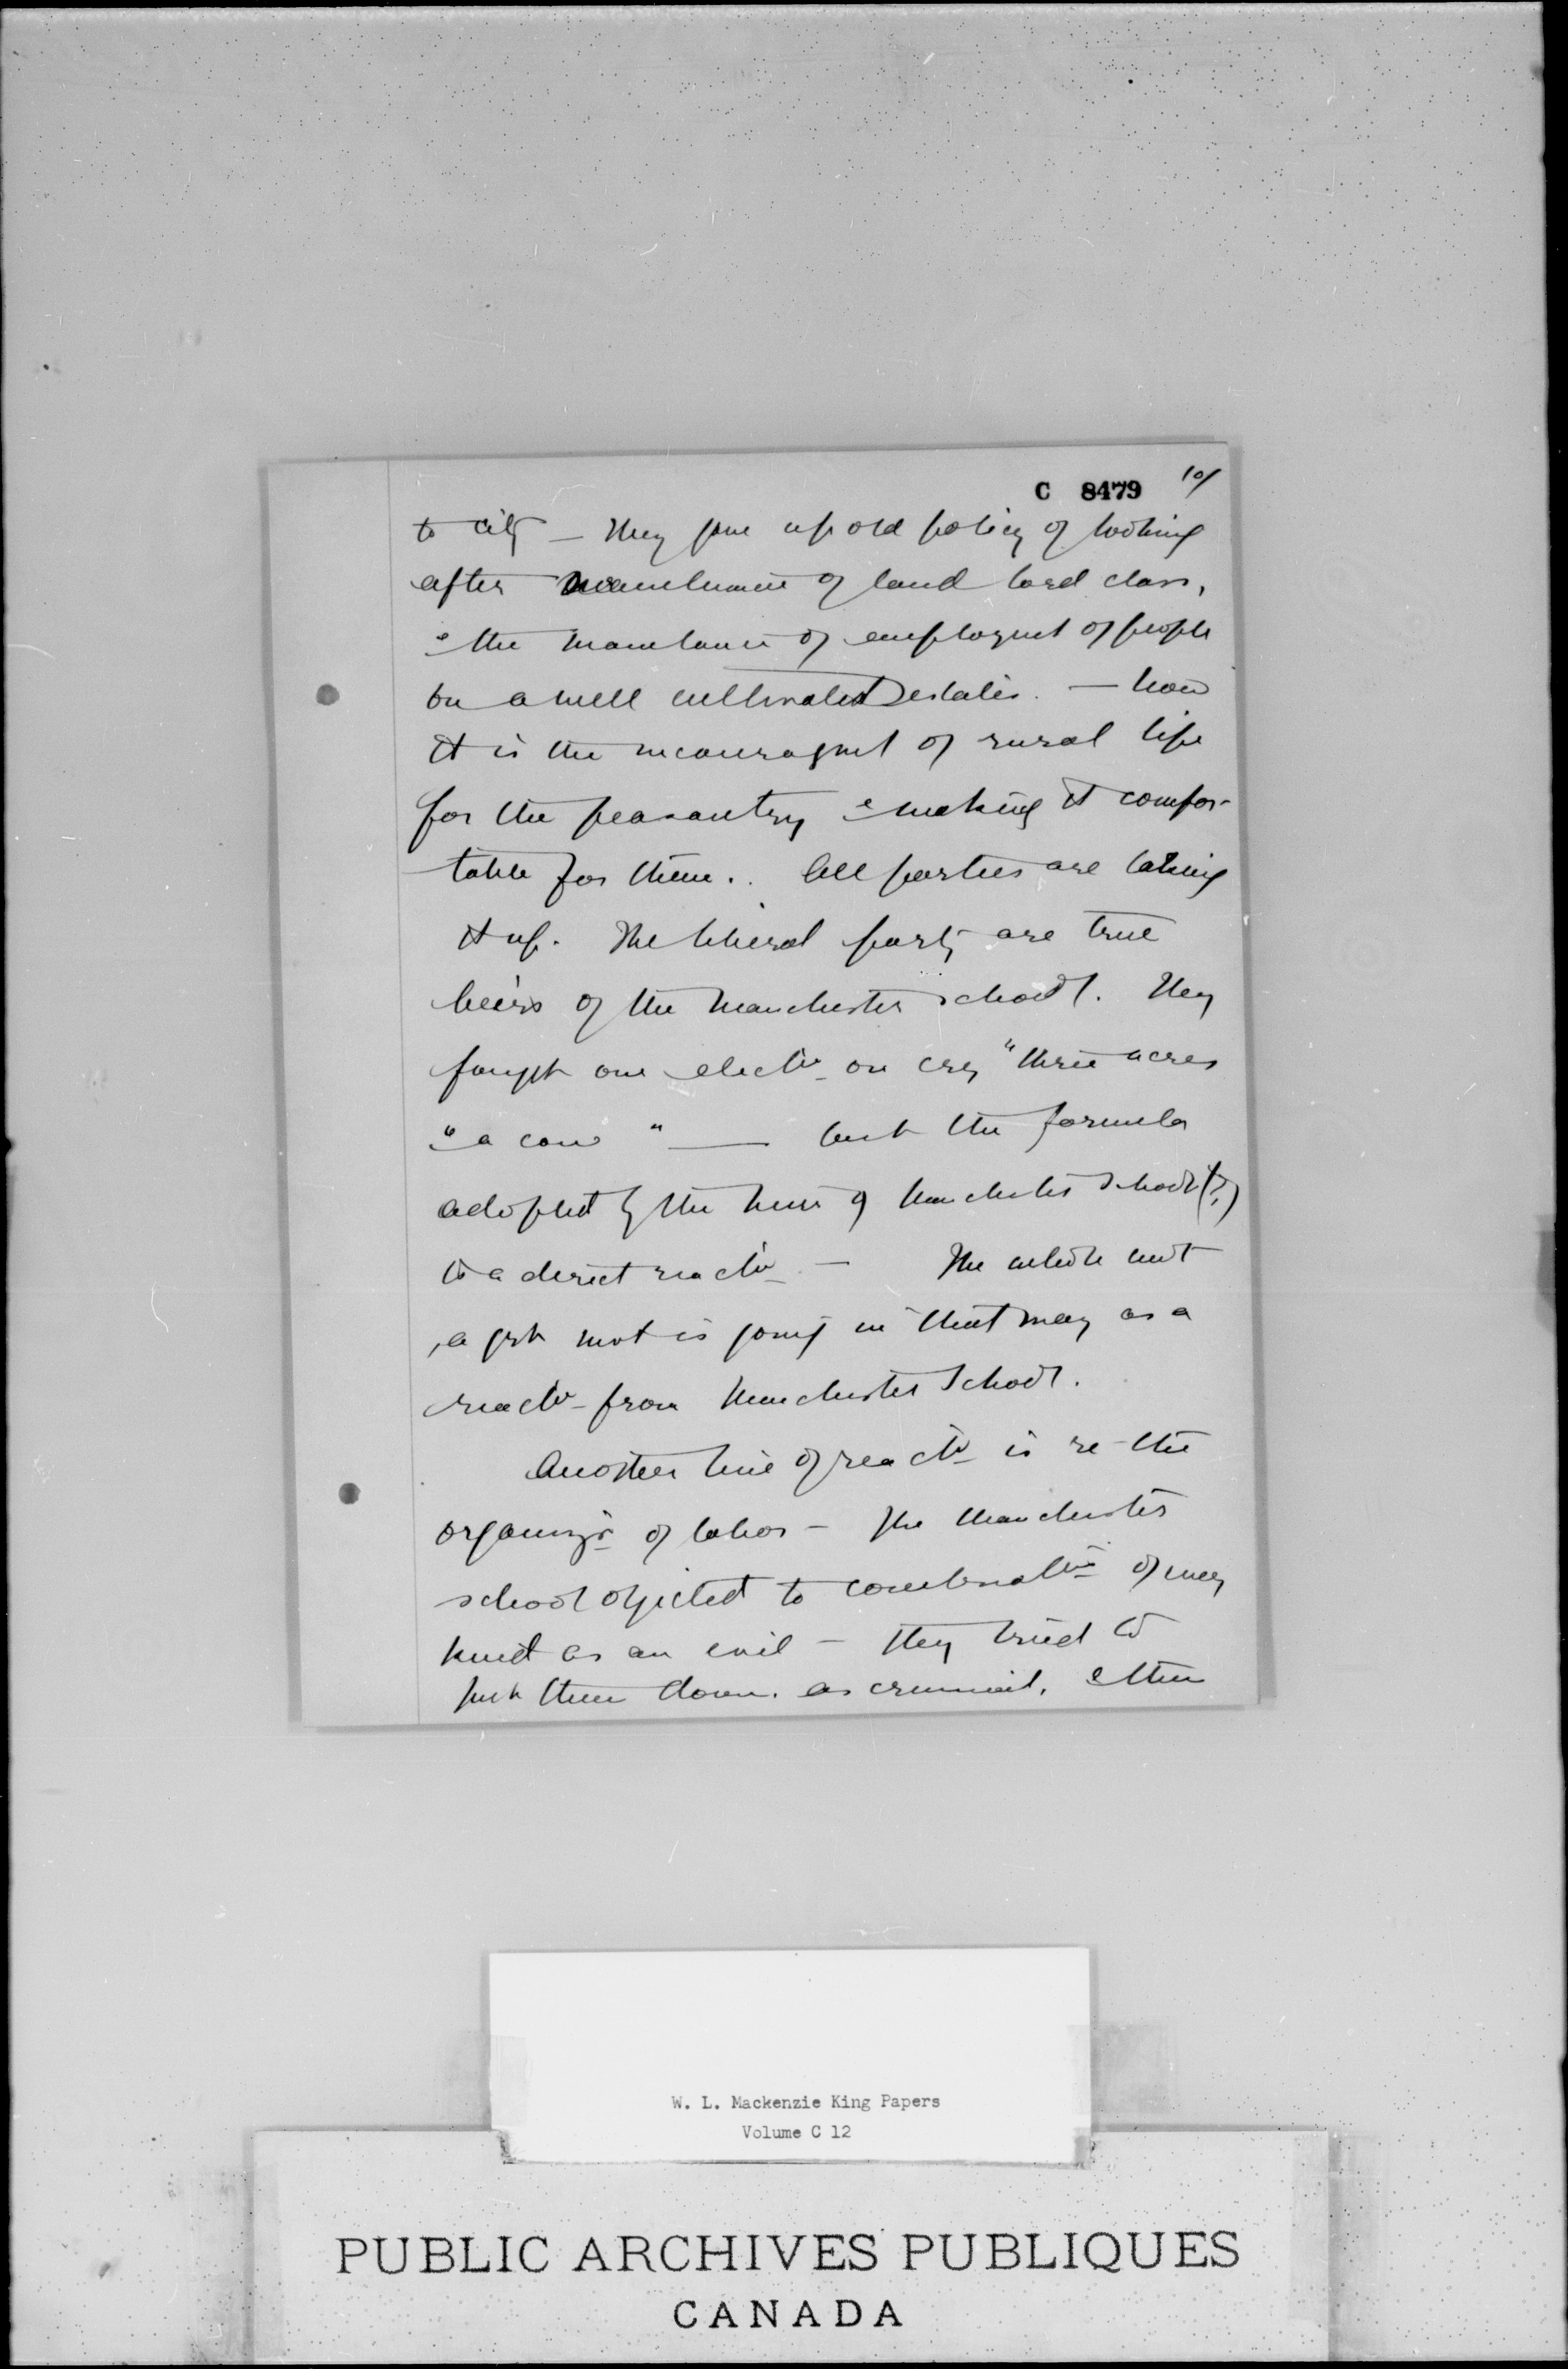 C 8479 10/
to city — They gave up old policy of looking
after maintenance of land lord class,
& the maintance of employmt of people
on a well cultivated estates. — now
it is the incouragmt of rural life
for the peasantry & making it comfor-
table for them. All parties are taking
it up. The liberal party are true
heirs of the Manchester school. They
fought one electn on cry "three acres
& a cow" — but the formula
adopted by the heirs of Manchester School (?)
is a direct reactn — The whole
is going in that way as a
reactn from Manchester School.
Another line of reactn is re the
organizn of labor — The Manchester
school objected to combinatns of any
kind as an evil — they tried to
put them down. as criminal, & then
W. L. Mackenzie King Papers
Volume C 12
PUBLIC ARCHIVES PUBLIQUES
CANADA